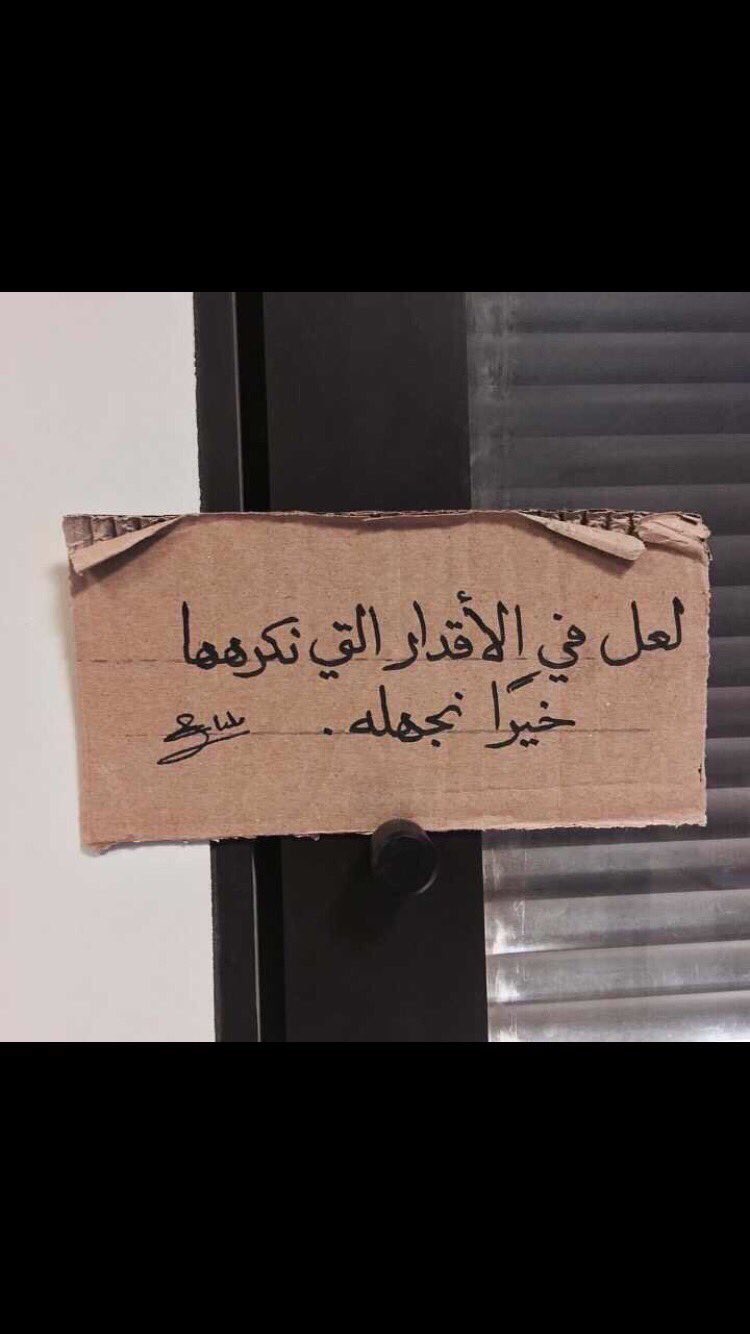 لعل في الأقدار التي نكرهها
خيرًا نجهله .